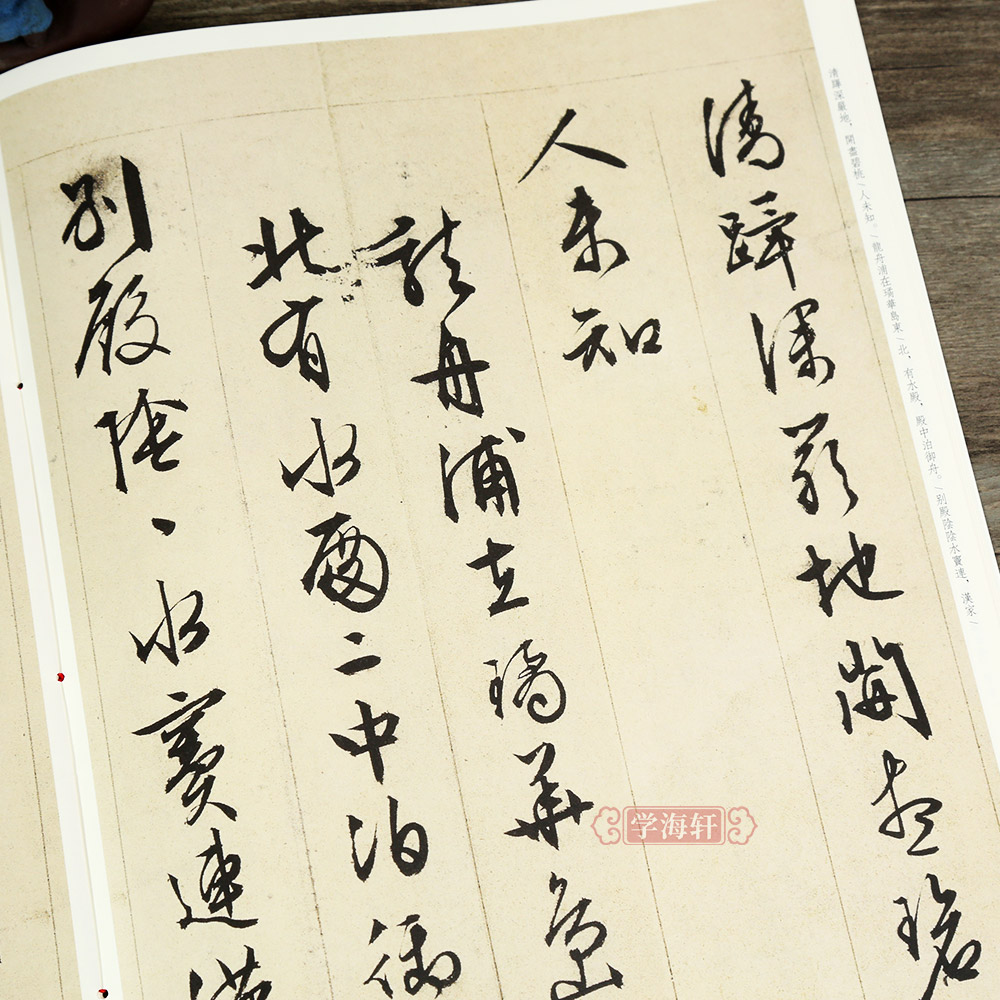 清蹕深嚴地開盡碧
人未知
龍舟浦在璚華島
北有水殿二中泊御
別殿陰、水賨連漢
清蹕深嚴地，開盡碧桃/人未知。/龍舟浦在璚華島東/北，有水殿，殿中泊御舟。/別殿陰陰水竇連，漢家/
学海轩